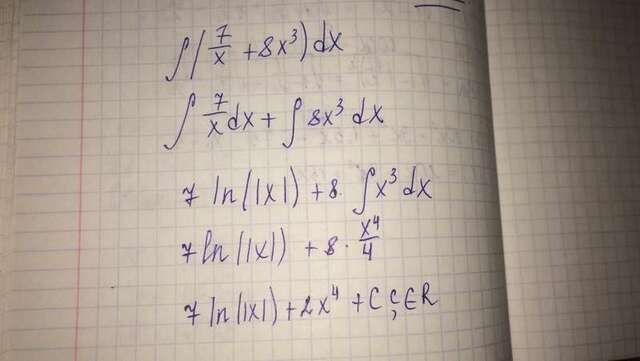 ∫(7/x + 8x³)dx
∫ 7/x dx + ∫ 8x³ dx
7 ln(|x|) + 8 · ∫x³ dx
7 ln(|x|) + 8 · x⁴/4
7 ln(|x|) + 2x⁴ + C, C ∈ R